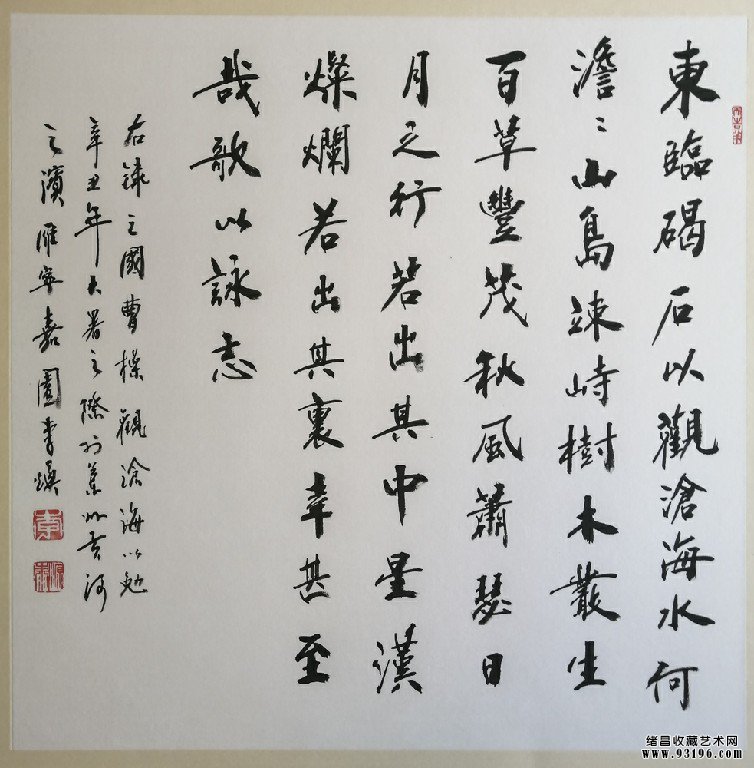 東臨碣石以觀滄海水何
澹〻山島竦峙樹木叢生
百草豐茂秋風蕭瑟日
月之行若出其中星漢
燦爛若出其裏幸甚至
哉歌以詠志
右錄之國曹操觀滄海以勉
辛丑年大暑之際於蕉州古河
之濱雁寧嘉園李煥
绪昌收藏艺术网
www.93196.com